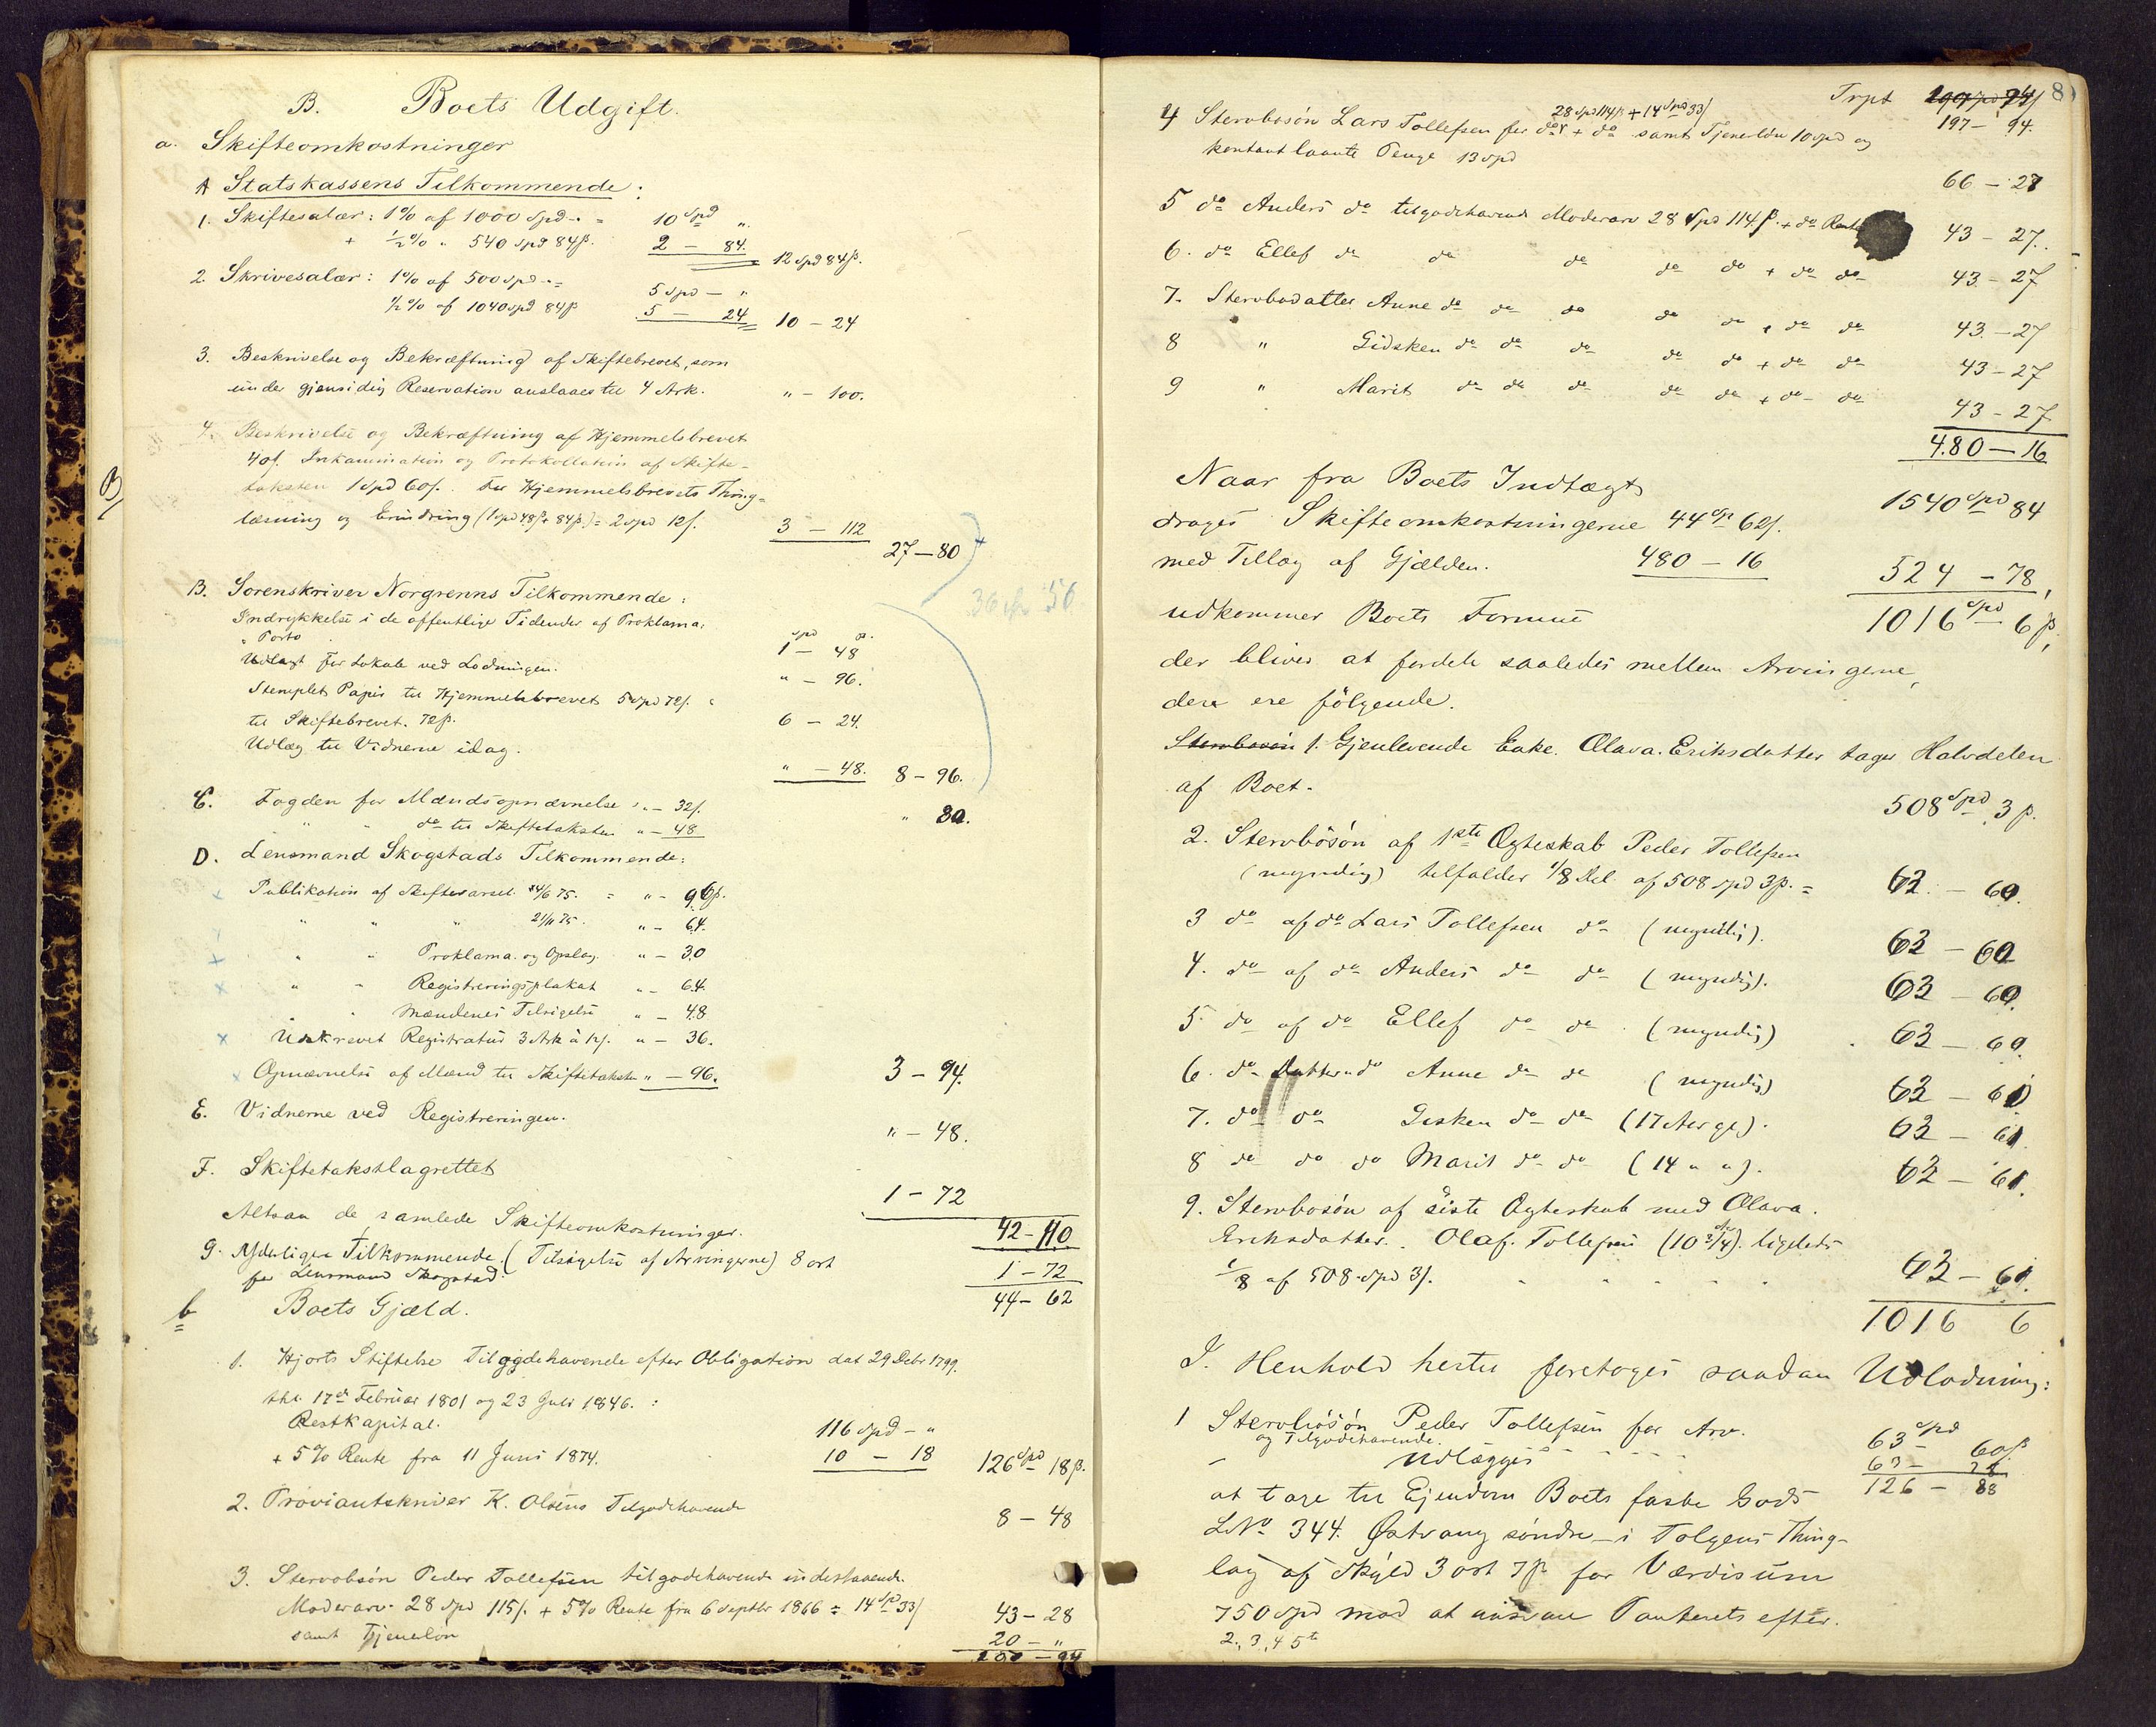 B. Boets Udgift.
a. Skifteomkostninger
A Statskassens Tilkommende:
1. Skiftesalær: 1% af 1000 Spd - = 10 Spd "
+ ½% " 540 Spd 84 β. 2 - 84. 12 Spd 84 β.
2. Skrivesalær: 1% af 500 Spd - = 5 Spd - "
½% af 1040 Spd 84 β 5 - 24 10 - 24
3. Beskrivelse og Bekræftning af Skiftebrevet, som
under gjensidig Reservation anslaaes til 4 Ark. " - 100.
4. Beskrivelse og Bekræftning af Hjemmelsbrevet
40 β. Inkamination og Protokollation af Skifte-
taksten 1 Spd 60 β. For Hjemmelsbrevets Thing-
læsning og Erindring (1 Spd 48 β + 84 β) = 2 Spd 12 β. 3 - 112
27 - 80
B. Sorenskriver Norgrenns Tilkommende:
Indrykkelse i de offentlige Tidender af Proklama,
" Porto 1 Spd - 48 β.
Udlagt for Lokale ved Lodningen. " - 96.
Stemplet Papir til Hjemmelsbrevet 5 Spd 72 β.
til Skiftebrevet. 72 β. 6 - 24.
Udlæg til Vidnerne idag. " - 48. 8 - 96.
C. Fogden for Mændsopnævnelse " - 32 β.
" " do til Skiftetaksten " - 48 " 80.
D. Lensmand Skogstads Tilkommende:
Publikation af Skiftesamt. 24/6 75. = " - 96 β.
" " " 21/11 75. " - 64.
" " Proklama og Opslag. " - 30
" " Registreringsplakat " - 64.
" " Mændenes Tilsigelse " - 48
Udskrevet Registratur 3 Ark à 12 β. " - 36.
Opnævnelse af Mænd til Skiftetaksten " - 96. 3 - 94.
E. Vidnerne ved Registreringen. " - 48.
F. Skiftetakstlagrettet 1 - 72
Altsaa de samlede Skifteomkostninger. 42 - 110
G. Yderligere Tilkommende (Tilsigelse af Arvingerne) 8 ort
for Lensmand Skogstad. 1 - 72
44 - 62
b Boets Gjæld.
1. Hjorts Stiftelse Tilgodehavende efter Obligation dat 29 Debr 1799.
thl. 17de Februar 1801 og 23 Juli 1846. :
Restkapital. 116 Spd - "
+ 5% Rente fra 11 Juni 1874. 10 - 18 126 Spd 18 β.
2. Proviantskriver K. Olsens Tilgodehavende 8 - 48
3. Stervbosön Peder Tollefsen tilgodehavende indestaaende
Moderarv 28 Spd 115 β. + 5% Rente fra 6 Septbr 1866 = 14 Spd 33 β 43 - 28
samt Tjenerlön 20 - "
Trpt 197 - 94.
28 Spd 114 β + 14 Spd 33 β
4 Stervbosön Lars Tollefsen for do + do samt Tjenerlön 10 Spd og
kontant laante Penge 13 Spd 66 - 27
5 do Anders do tilgodehavende Moderarv 28 Spd 114 β. + do Rente 43 - 27.
6. do Ellef do do do do do + do do 43 - 27
7. Stervbodatter Anne do do do do do + do do 43 - 27
8 " Gidsken do do do do do + do do 43 - 27
9 " Marit do do do do do + do do 43 - 27
480 - 16
Naar fra Boets Indtægt 1540 Spd 84
drages Skifteomkostningerne 44 Sp 62 β.
med Tillæg af Gjælden. 480 - 16 524 - 78,
udkommer Boets Formue 1016 Spd 6 β,
der bliver at fordele saaledes mellem Arvingerne,
der ere fölgende.
Stervbosön 1. Gjenlevende Enke Olava Eriksdatter tager Halvdelen
af Boet. 508 Spd 3 β.
2. Stervbösön af 1ste Ægteskab Peder Tollefsen
(myndig) tilfalder 1/8 Del af 508 Spd 3 β. = 63 - 60.
3 do af do Lars Tollefsen do (myndig). 63 - 60
4. do af do Anders do do (myndig). 63 - 60.
5 do af do Ellef do do (myndig) 63 - 60.
6. do Datter do Anne do do (myndig) 63 - 60
7. do do Gisken do do (17 Aar gl). 63 - 61.
8 do do do Marit do do (14 " "). 63 - 61.
9. Stervbosön af sidste Ægteskab med Olava
Eriksdatter. Olaf Tollefsen (10 3/4 Ar). ligeledes
1/8 af 508 Spd 3 β. 63 - 61.
1016 6
I. Henhold hertil foretoges saadan Udlodning:
1 Stervbösön Peder Tollefsen for Arv. 63 Spd 60 β
og Tilgodehavende. 63 - 28
Udlægges 126 - 88
at tage til Ejendom Boets faste Gods
LNo 344. Østvang söndre i Tolgens Thing-
lag af Skyld 3 ort 7 β for Værdisum
750 Spd mod at ansvare Panterets efter.
2., 3., 4 5te